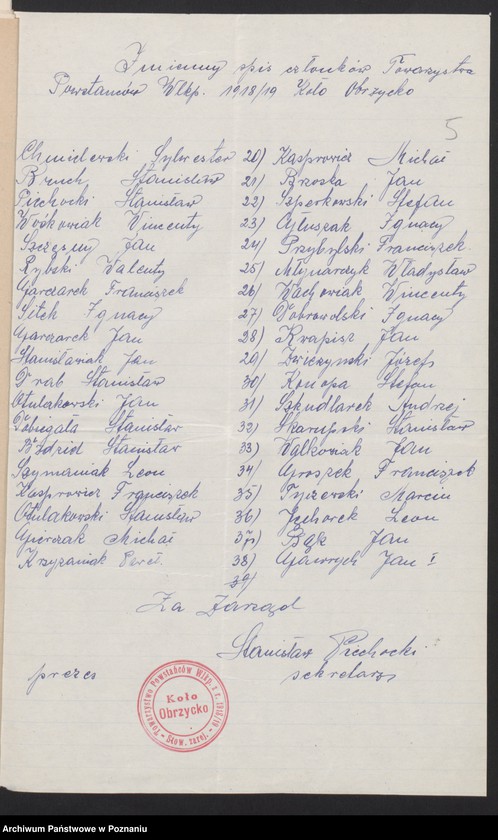 Imienny spis członków Towarzystwa
Powstańców Wlkp. 1918/19 Koło Obrzycko
5
Chmielewski Sylwester
Bruch Stanisław
Piechocki Stanisław
Wośkowiak Wincenty
Szczęsny Jan
Rybski Walenty
Garczarek Franciszek
Sitek Ignacy
Garczarek Jan
Stanisławiak Jan
Drab Stanisław
Otulakowski Jan
Pobiegała Stanisław
Stanisław
Szymaniak Leon
Kasprowicz Franciszek
Otulakowski Stanisław
Michał
Krzyżaniak
20) Kasprowicz Michał
21) Brzoska Jan
22) Szperkowski Stefan
23) Ignacy
24) Przybylski Franciszek
25) Młynarczyk Władysław
26) Wachowiak Wincenty
27) Dobrowolski Ignacy
28) Krapisz Jan
29) Józef
30) Konopa Stefan
31) Szkudlarek Andrzej
32) Skarupski Stanisław
33) Walkowiak Jan
34) Groszek Franciszek
35) Tyszewski Marcin
36) Leon
37) Bąk Jan
38) Gawrych Jan I
39)
Za Zarząd
Stanisław Piechocki
prezes sekretarz
Towarzystwo Powstańców Wlkp. z r. 1918/19
Koło
Obrzycko
Stow. zarej.
Archiwum Państwowe w Poznaniu